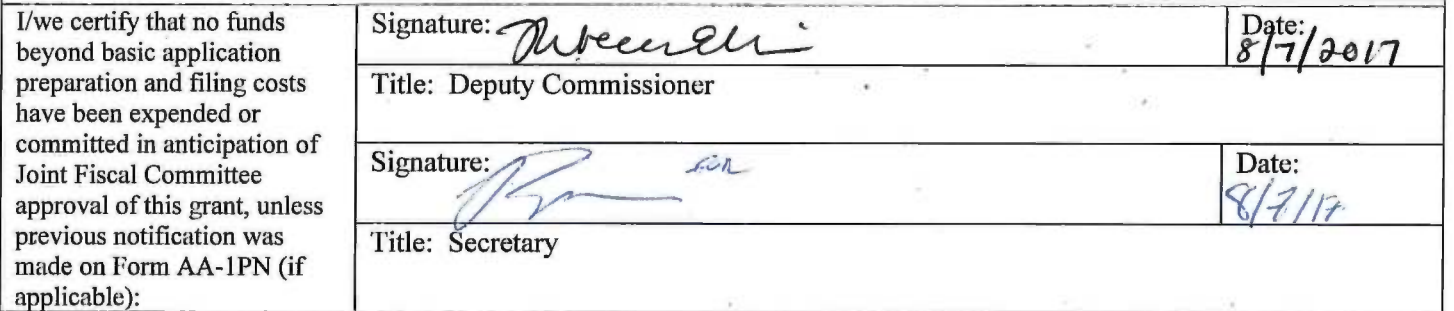 I/we certify that no funds
beyond basic application
preparation and filing costs
have been expended or
committed in anticipation of
Joint Fiscal Committee
approval of this grant, unless
previous notification was
made on Form AA-1PN (if
applicable):
Signature:
Date:
8/7/2017
Title: Deputy Commissioner
Signature: for
Date:
8/7/17
Title: Secretary